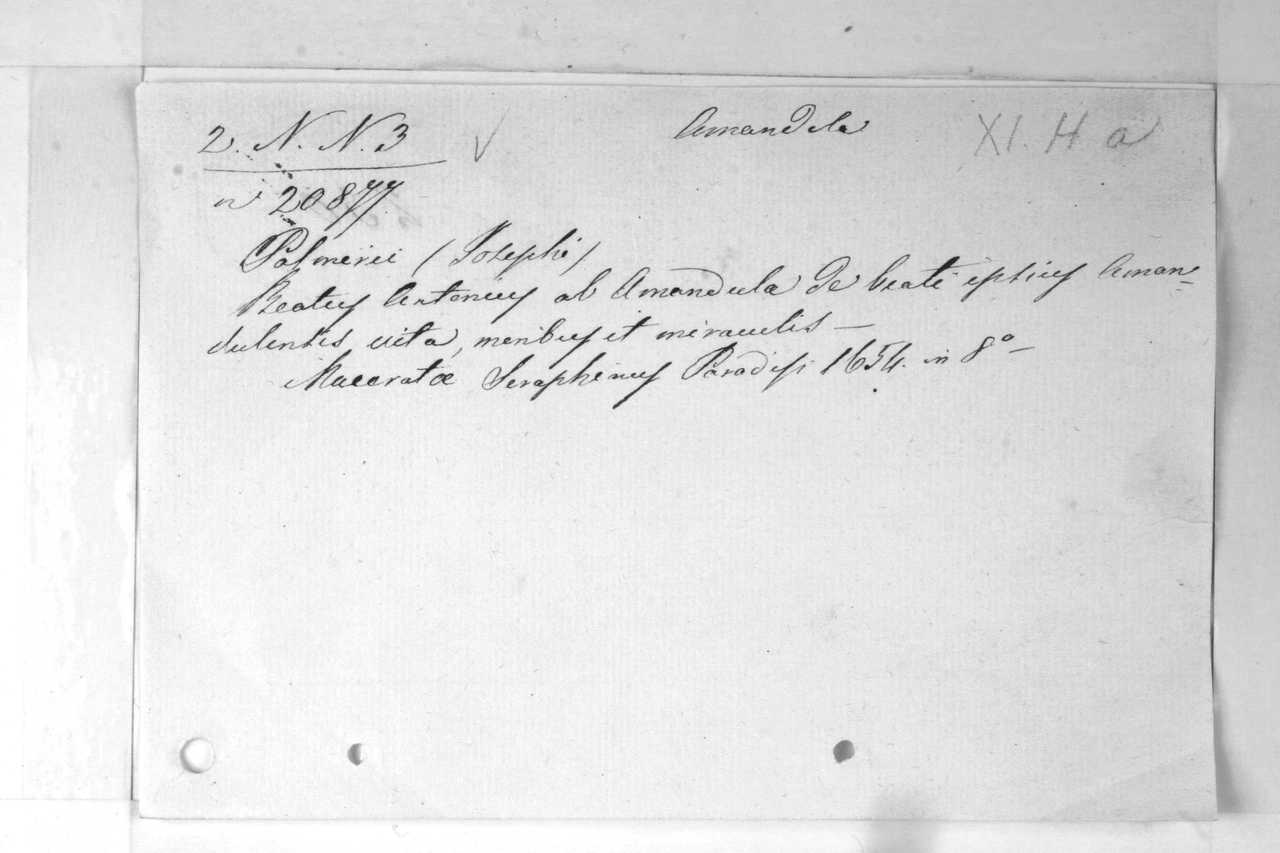 2. N. N. 3 √ Amandula XI. H a
n° 20877
Palmerii (Josephi)
Beatus Antonius ab Amandula de beati ipsius Aman-
dulentis vita, moribus et miraculis —
Maceratæ Seraphinus Paradisi 1654. in 8° —